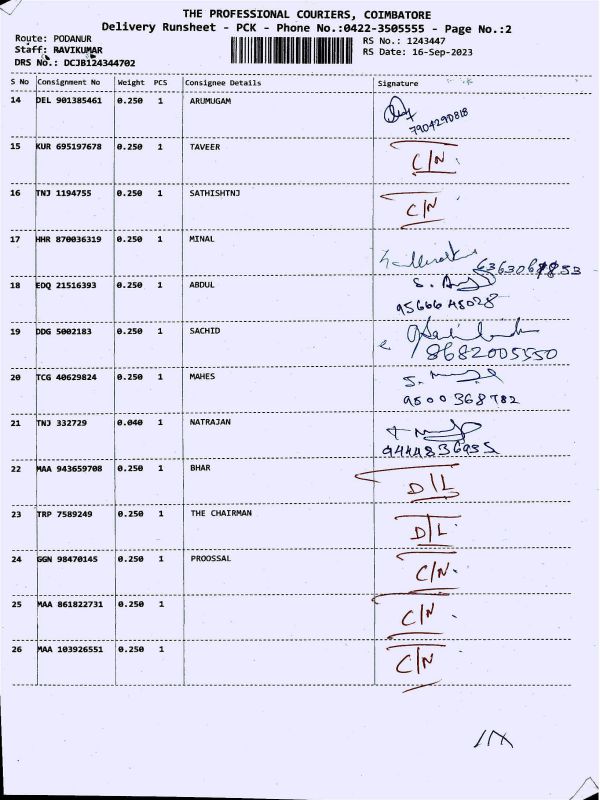 THE PROFESSIONAL COURIERS, COIMBATORE
Delivery Runsheet - PCK - Phone No.:0422-3505555 - Page No.:2
Route: PODANUR
RS No.: 1243447
Staff: RAVIKUMAR
RS Date: 16-Sep-2023
DRS No.: DCJB124344702
S No Consignment No Weight PCS Consignee Details Signature
14 DEL 901385461 0.250 1 ARUMUGAM
7904290818
15 KUR 695197678 0.250 1 TAVEER C/N
16 TNJ 1194755 0.250 1 SATHISHTNJ C/N
17 HHR 870036319 0.250 1 MINAL
18 EDQ 21516393 0.250 1 ABDUL
95666 48028
19 DDG 5002183 0.250 1 SACHID
8682005550
20 TCG 40629824 0.250 1 MAHES
9500368782
21 TNJ 332729 0.040 1 NATRAJAN
9444836955
22 MAA 943659708 0.250 1 BHAR D/L
23 TRP 7589249 0.250 1 THE CHAIRMAN D/L
24 GGN 98470145 0.250 1 PROOSSAL C/N
25 MAA 861822731 0.250 1 C/N
26 MAA 103926551 0.250 1 C/N